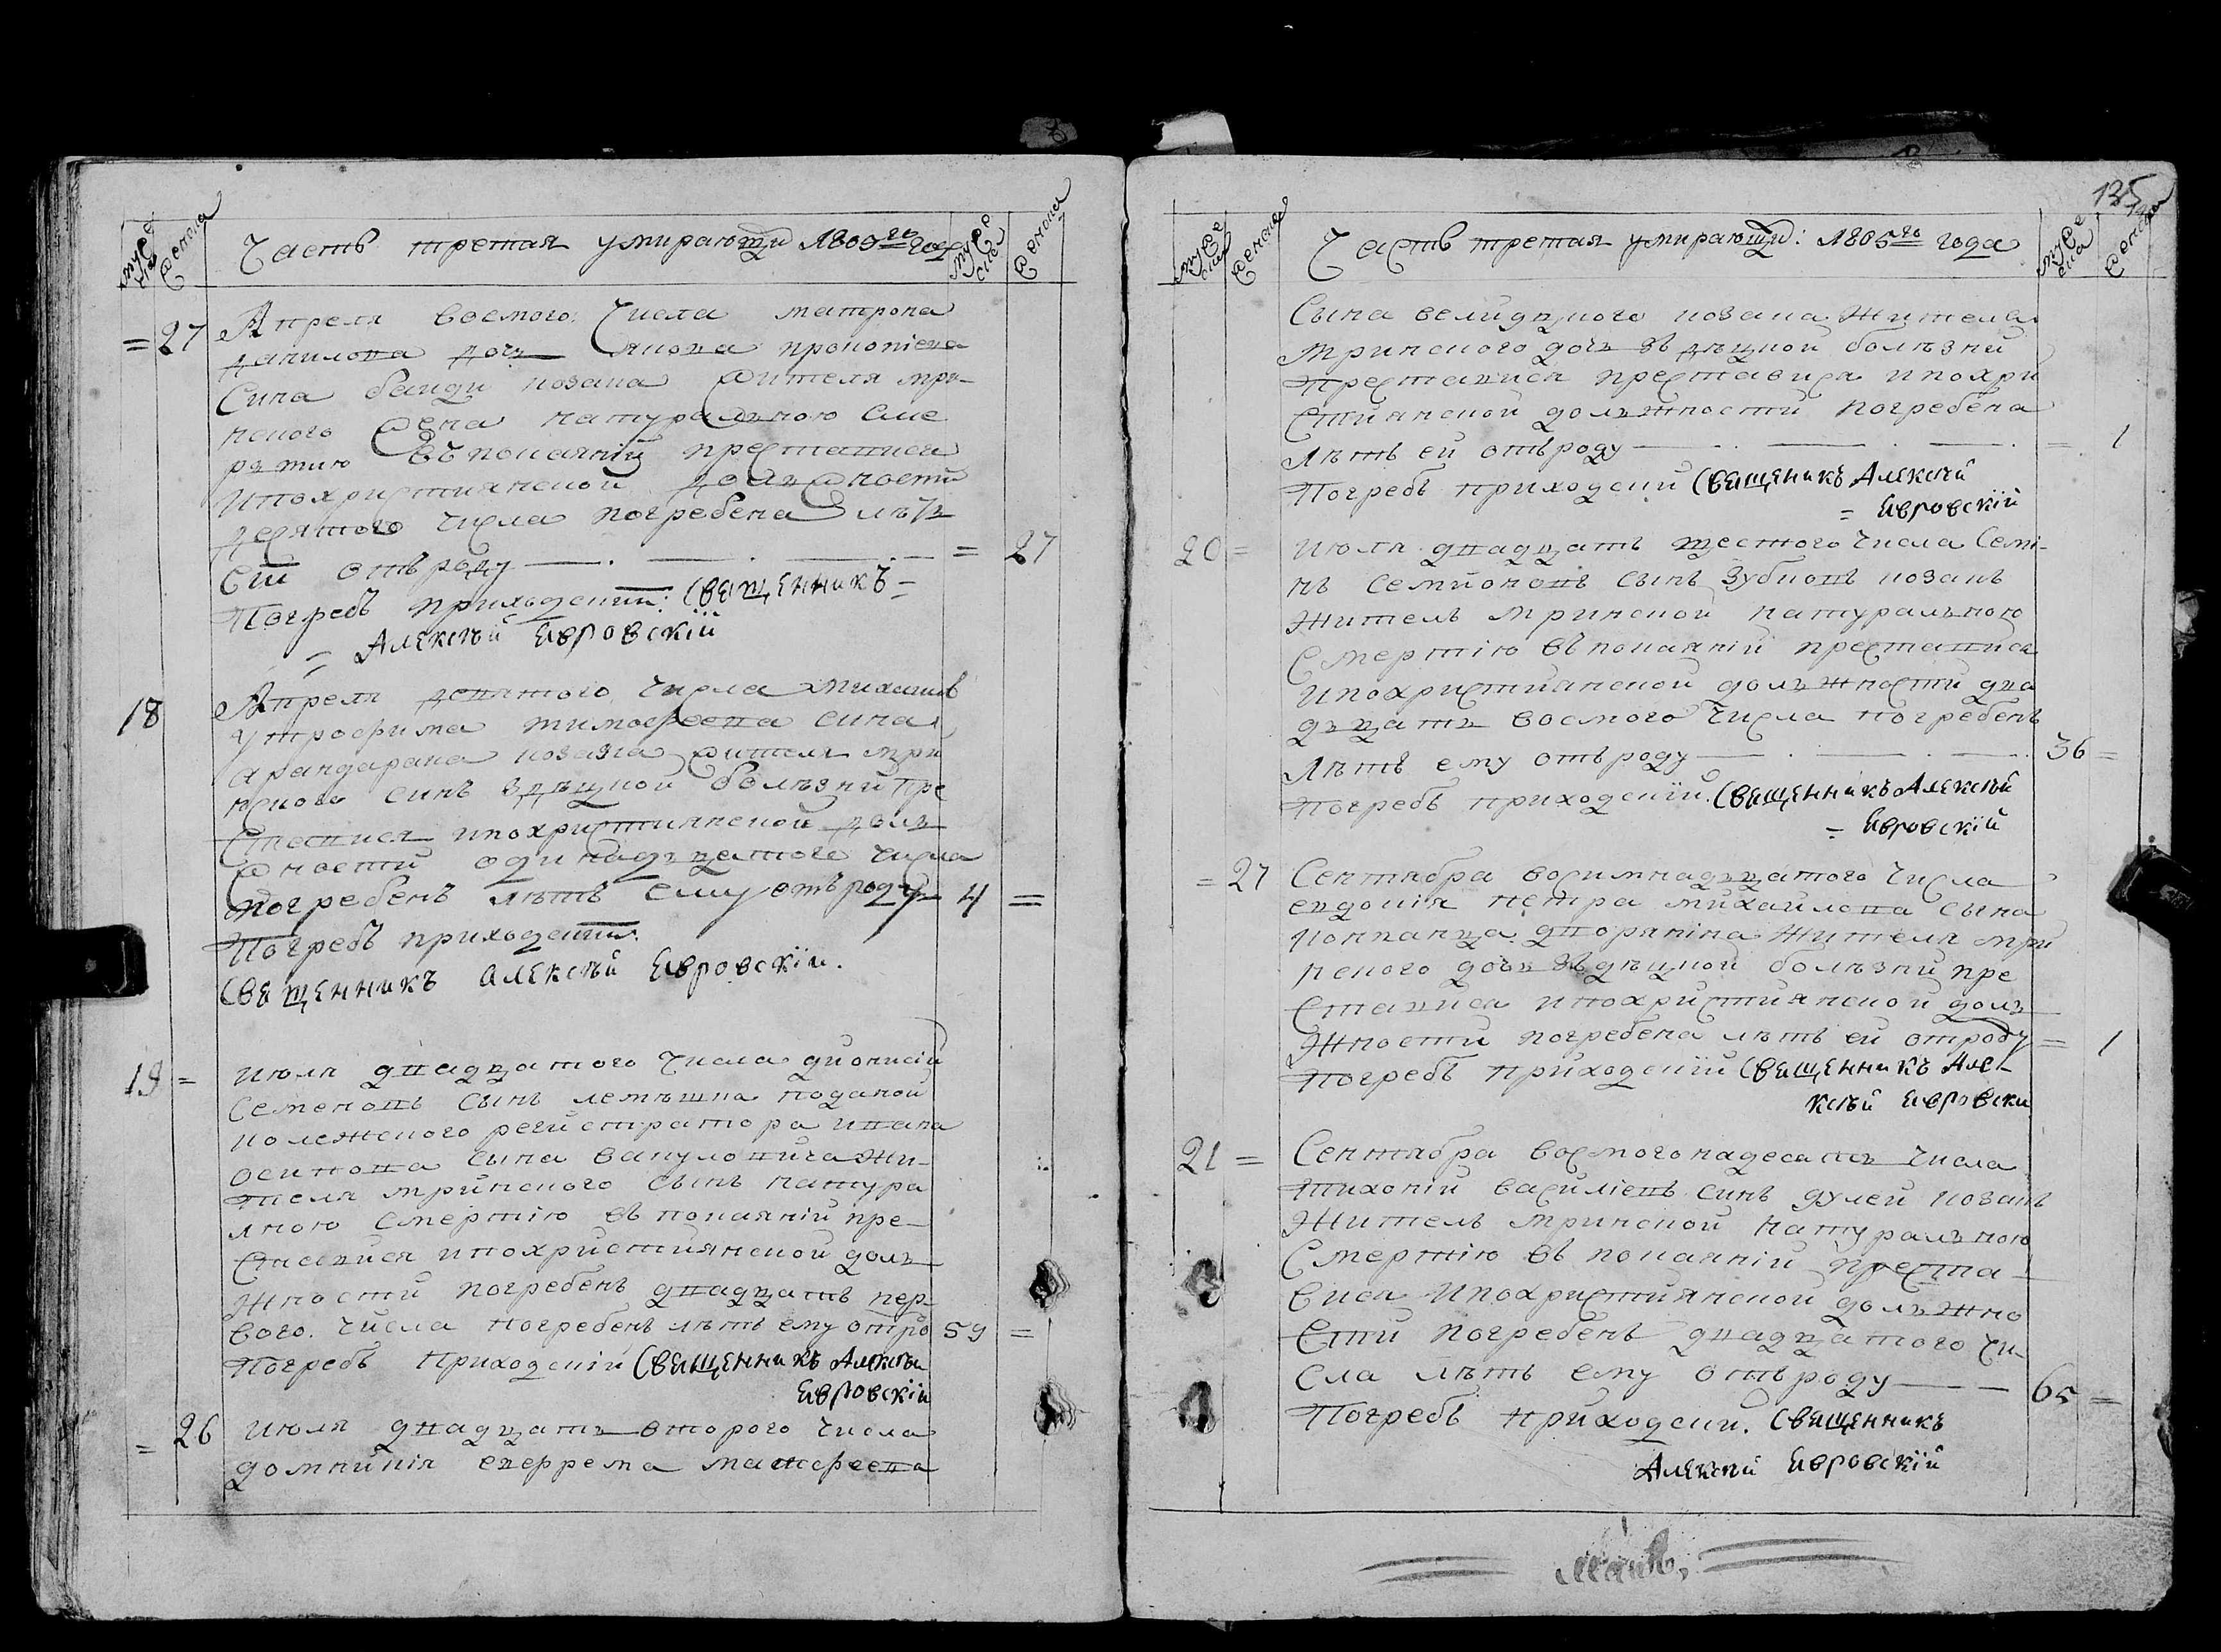 мужеска
женска
Часть третая умирающїи 1805го года
мужеска
женска
= 27 Апреля восмого числа матрона
данилова дочь якова прокопїева
сина козака жителя мрин-
ского жена натуралною сме
ртию въ покаянїй преставися
ипохристиянской должности
десятого числа погребена лѣтъ
отъ роду = 27
Погребъ приходский: священникъ =
= Алексѣй Явровскїй
18 Апреля девятого числа михаилъ
трофима тимофеева сина
козака жителя мрин
ского синъ здѣцкой болѣзнй пре
ставися ипохристиянской долж
ности одинадцатого числа
погребенъ лѣтъ ему отъ роду 4 =
Погребъ приходский.
священникъ алексѣй Явровскїй.
19 = июля двадцатого числа дионисїй
семеновъ сынъ лемѣшка поданой
колежского регистратора ивана
осипова сына вакуловича жи-
теля мринского сынъ натура
лною смертїю въ покаянїй пре-
ставися ипохристиянской долж
жности погребенъ двадцать пер-
вого числа погребенъ лѣтъ ему отро 59 =
Погребъ приходскїй священникъ Алексѣй
Явровскїй
= 26 июля двадцать второго числа
домникїя евфрема матфеева
135
мужеска
женска
Часть третая умирающїи: 1805го года
мужеска
женска
сына козака жителя
мринского дочь зъ дѣцкой болѣзнй
преставися преставися ипохри
стиянской должности погребена
лѣтъ ей отъ роду = 1
Погребъ приходский священникъ Алексѣй
= Явровскїй
20 = июля двадцать шестого числа семї-
нъ семионовъ сынъ зубковъ козакъ
житель мринской натуралною
смертїю въ покаянїй преставися
ипохристиянской должности два
дцать восмого числа погребенъ
лѣтъ ему отъ роду 36 =
Погребъ приходскїй. священникъ Алексѣй
= Явровскїй
= 27 Сентября восимнадцятого числа
евдокїя петра михайлова сына
дворянина жителя мрин
ского дочь зъ дѣцкой болѣзнй пре
ставися ипохристиянской долж
жности погребена лѣтъ ей отроду = 1
Погребъ приходскїй священникъ Алек
ксѣй Явровски
21 = Сентября восмогонадесять числа
тихонїй василїевъ синъ дулей козакъ
житель мринской натуралною
смертїю въ покаянїй преста-
вися ипохристиянской должно
сти погребенъ двадцатого чи-
сла лѣтъ ему отъ роду 65 =
Погребъ приходский. священникъ
Алексѣй Явровскїй